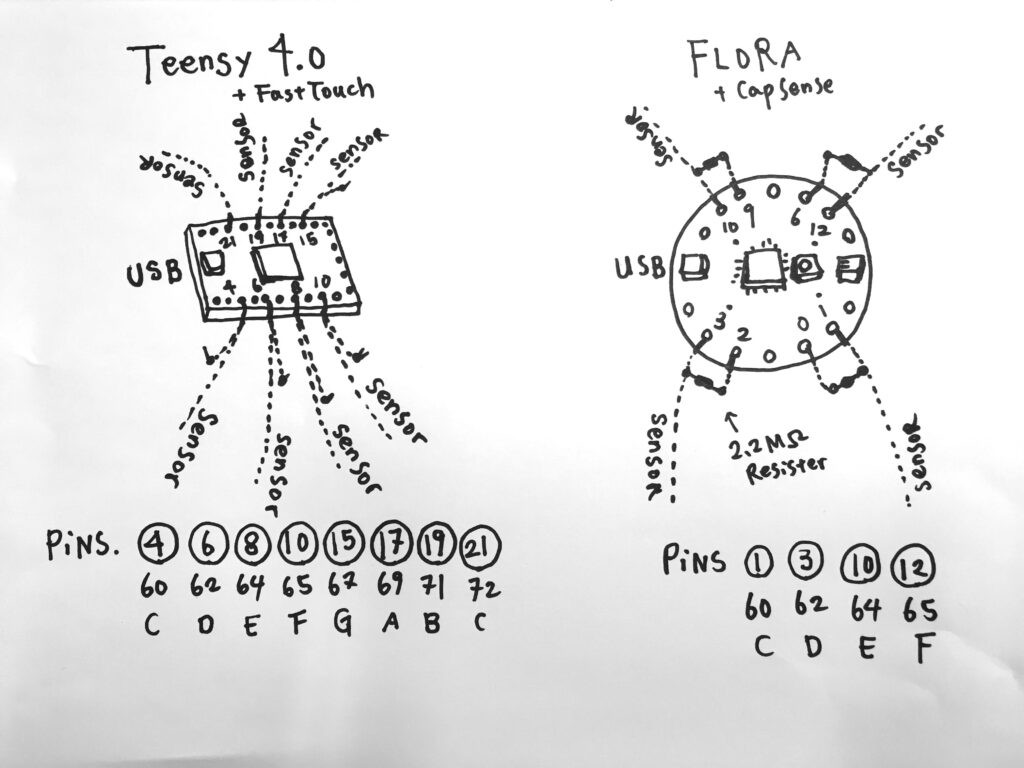 Teensy 4.0
+ FastTouch
sensor
sensor
sensor
sensor
21 19 17 15
USB
4 6 8 10
sensor
sensor
sensor
sensor
PiNS. 4 6 8 10 15 17 19 21
60 62 64 65 67 69 71 72
C D E F G A B C
FLORA
+ CapSense
sensor
sensor
10 9 6 12
USB
3 2 0 1
sensor
sensor
2.2MΩ
Resister
PiNS 1 3 10 12
60 62 64 65
C D E F